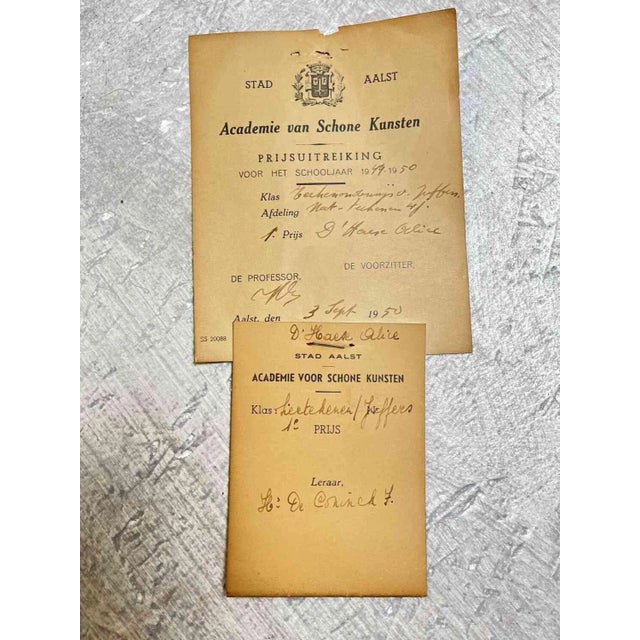 STAD AALST
Academie van Schone Kunsten
PRIJSUITREIKING
VOOR HET SCHOOLJAAR 1949-1950
Klas
Afdeling
1e Prijs D'Haese Alice
DE VOORZITTER.
DE PROFESSOR,
Aalst, den 3 Sept 1950
SS 20088
D'Haese Alice
STAD AALST
ACADEMIE VOOR SCHONE KUNSTEN
Klas: Juffers
1e PRIJS
Leraar,
Hr De Coninck J.